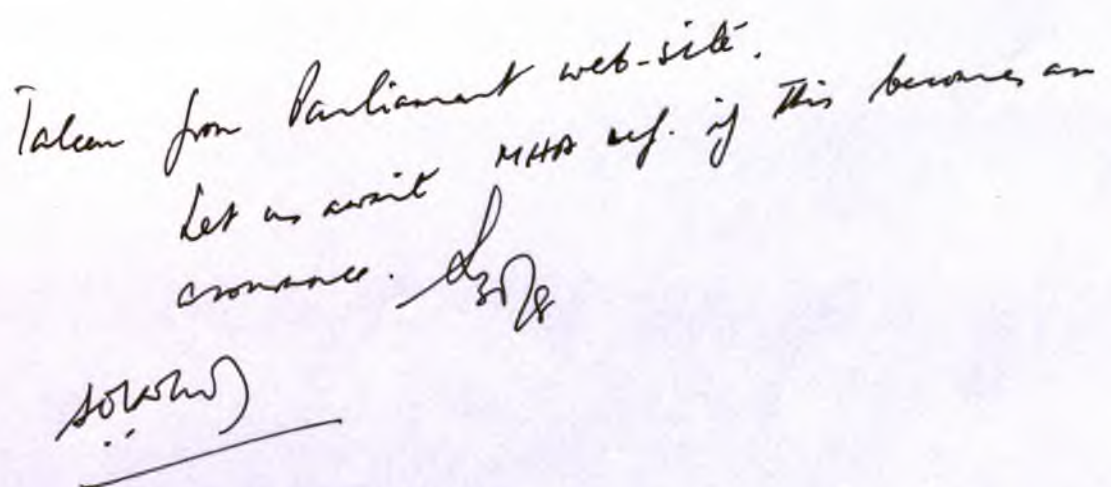 Taken from Parliament web-site.
Let us await MHA ref. if this becomes an
assurance.
30/8